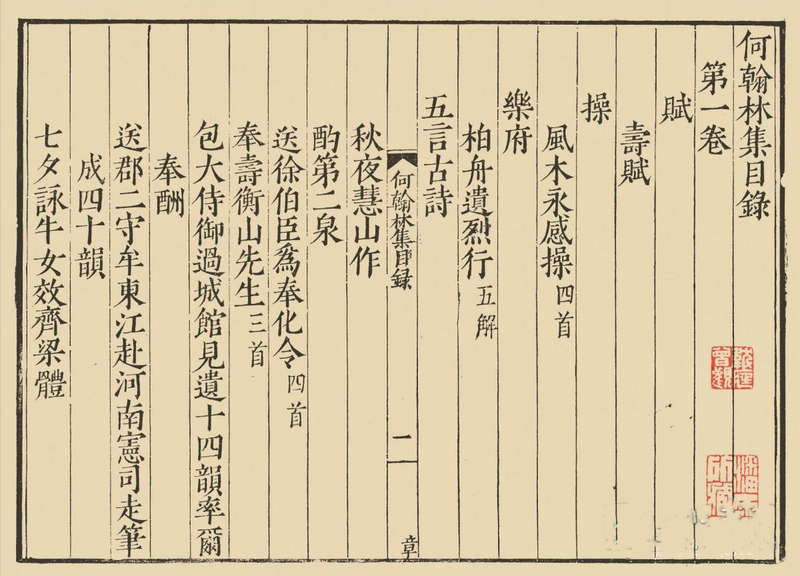 何翰林集目錄
第一卷
賦
壽賦
操
風木永感操四首
樂府
柏舟遺烈行五解
五言古詩
何翰林集目録
二
章
秋夜慧山作
酌第二泉
送徐伯臣爲奉化令四首
奉壽衡山先生三首
包大侍御過城館見遺十四韻率爾
奉酬
送郡二守牟東江赴河南憲司走筆
成四十韻
七夕詠牛女效齊梁體